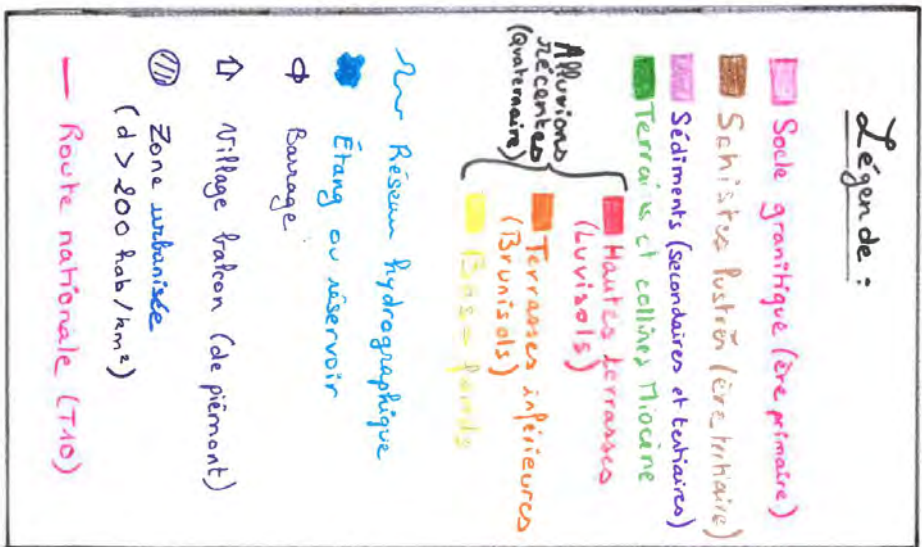 Légende :
Socle granitique (ère primaire)
Schistes lustrés (ère tertiaire)
Sédiments (secondaires et tertiaires)
Terrains et collines Miocène
Alluvions
récentes
(Quaternaire)
Hautes terrasses
(Luvisols)
Terrasses inférieures
(Brunisols)
Bas-fonds
Réseau hydrographique
Étang ou réservoir
Barrage
Village balcon (de piémont)
Zone urbanisée
(d > 200 hab/km²)
Route nationale (T10)